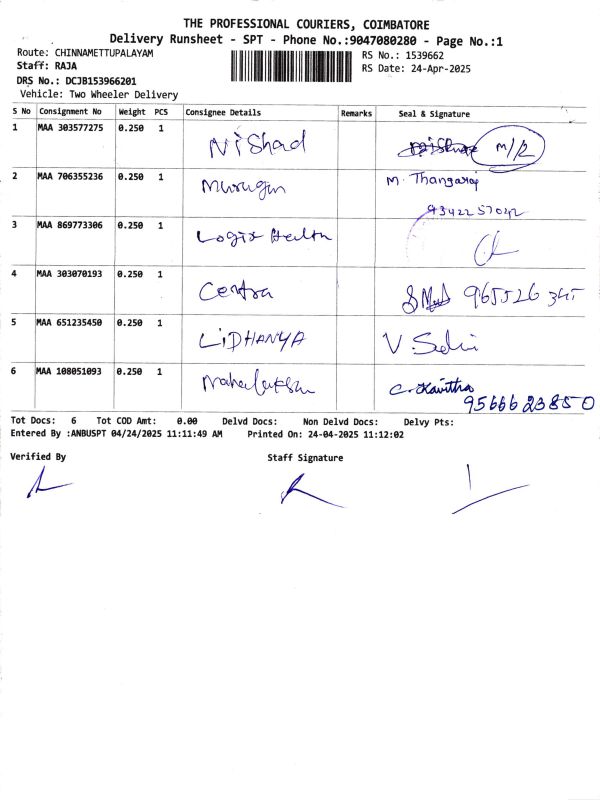 THE PROFESSIONAL COURIERS, COIMBATORE
Delivery Runsheet - SPT - Phone No.:9047080280 - Page No.:1
Route: CHINNAMETTUPALAYAM
RS No.: 1539662
Staff: RAJA
RS Date: 24-Apr-2025
DRS No.: DCJB153966201
Vehicle: Two Wheeler Delivery
S No Consignment No Weight PCS Consignee Details Remarks Seal & Signature
1 MAA 303577275 0.250 1 Nishad M/R
2 MAA 706355236 0.250 1 Murugan M. Thangaraj
9342257042
3 MAA 869773306 0.250 1 Logix Health
4 MAA 303070193 0.250 1 Centra 965526 345
5 MAA 651235450 0.250 1 LiDHANYA V. Selvi
6 MAA 108051093 0.250 1 Mahalakshmi C. Kavitha
9566623850
Tot Docs: 6 Tot COD Amt: 0.00 Delvd Docs: Non Delvd Docs: Delvy Pts:
Entered By :ANBUSPT 04/24/2025 11:11:49 AM Printed On: 24-04-2025 11:12:02
Verified By Staff Signature